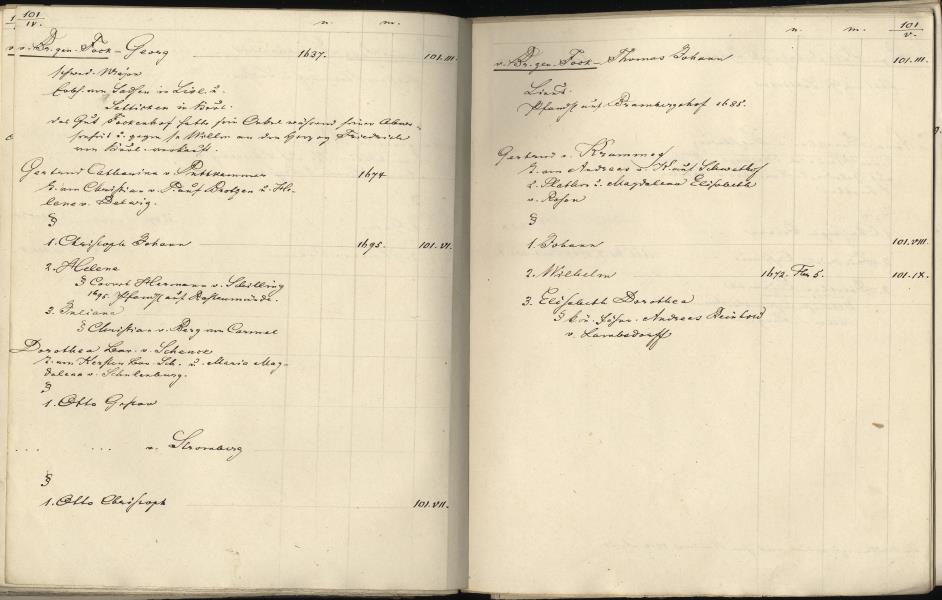 101
IV.
n. m.
v. Br. gen. Fock - Georg 1637. 101. III.
schwed. Major
Erbh. von Saßen in Livl. u.
in Kurl.
das Gut Fockenhof hatte sein Onkel während seiner Abwe-
senheit u. gegen sn Willen an den Herzog Friedrich
von Kurl. verkauft.
Gertrud Catharina v. Puttkammer 1674
T. von Christian v. P. auf u. He-
lene v.
§
1. Christoph Johann 1695. 101. VI.
2. Helene
§ Hermann v. Schilling
1695. Pfandh. auf
3. Juliane
§ Christian v. Berg von Carmel
Dorothea Leon. v. Schenck
T. von Kersten Sch. u. Maria Mag-
dalena v. Schulenburg.
§
1. Otto Gustav
... ... v. Stromberg
§
1. Otto Christoph 101. VII.
101
V.
n. m.
v. Br. gen. Fock - Thomas Johann 101. III.
Lieut.
Pfandh. auf 1685.
Gertrud v. Krummeß
T. von Andreas v. K. auf
u. Magdalena Elisabeth
v. Rosen
§
1. Johann 101. VIII.
2. Wilhelm 1672. Fbr 5. 101. IX.
3. Elisabeth Dorothea
§ Andreas Reinhold
v. Lambsdorff